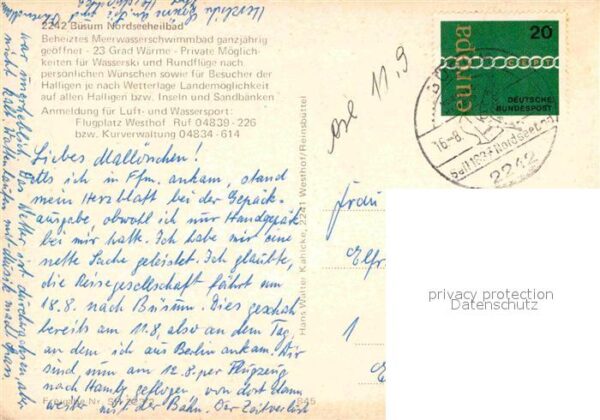 2242 Büsum Nordseeheilbad
Beheiztes Meerwasserschwimmbad ganzjährig
geöffnet - 23 Grad Wärme - Private Möglich-
keiten für Wasserski und Rundflüge nach
persönlichen Wünschen sowie für Besucher der
Halligen je nach Wetterlage Landemöglichkeit
auf allen Halligen bzw. Inseln und Sandbänken
Anmeldung für Luft- und Wassersport:
Flugplatz Westhof Ruf 04839 - 226
bzw. Kurverwaltung 04834 - 614
Liebes Mallönchen!
Als ich in Ffm. ankam, stand
mein Herzblatt bei der Gepäck-
ausgabe, obwohl ich nur Handgepäck
bei mir hatte. Ich habe mir eine
nette Sache geleistet. Ich glaubte,
die Reisegesellschaft fährt am
18.8. nach Büsum. Dies geschah
bereits am 11.8, also an dem Tag,
an dem ich aus Berlin ankam. Wir
sind nun am 12.8. per Flugzeug
nach Hambg geflogen von dort dann
weiter mit der Bahn. Der Zeitverlust
war unerheblich. Das Wetter ist durchwachsen, aber
nicht kalt.
mit Musik macht Spass
Herzlich
Hans Walter Kahlcke, 2241 Westhof/Reinsbüttel
11.9
europa
20
DEUTSCHE
BUNDESPOST
16.-8.
Seit 1837 Nordseebad
2242
Frau
Elfr
1
privacy protection
Datenschutz